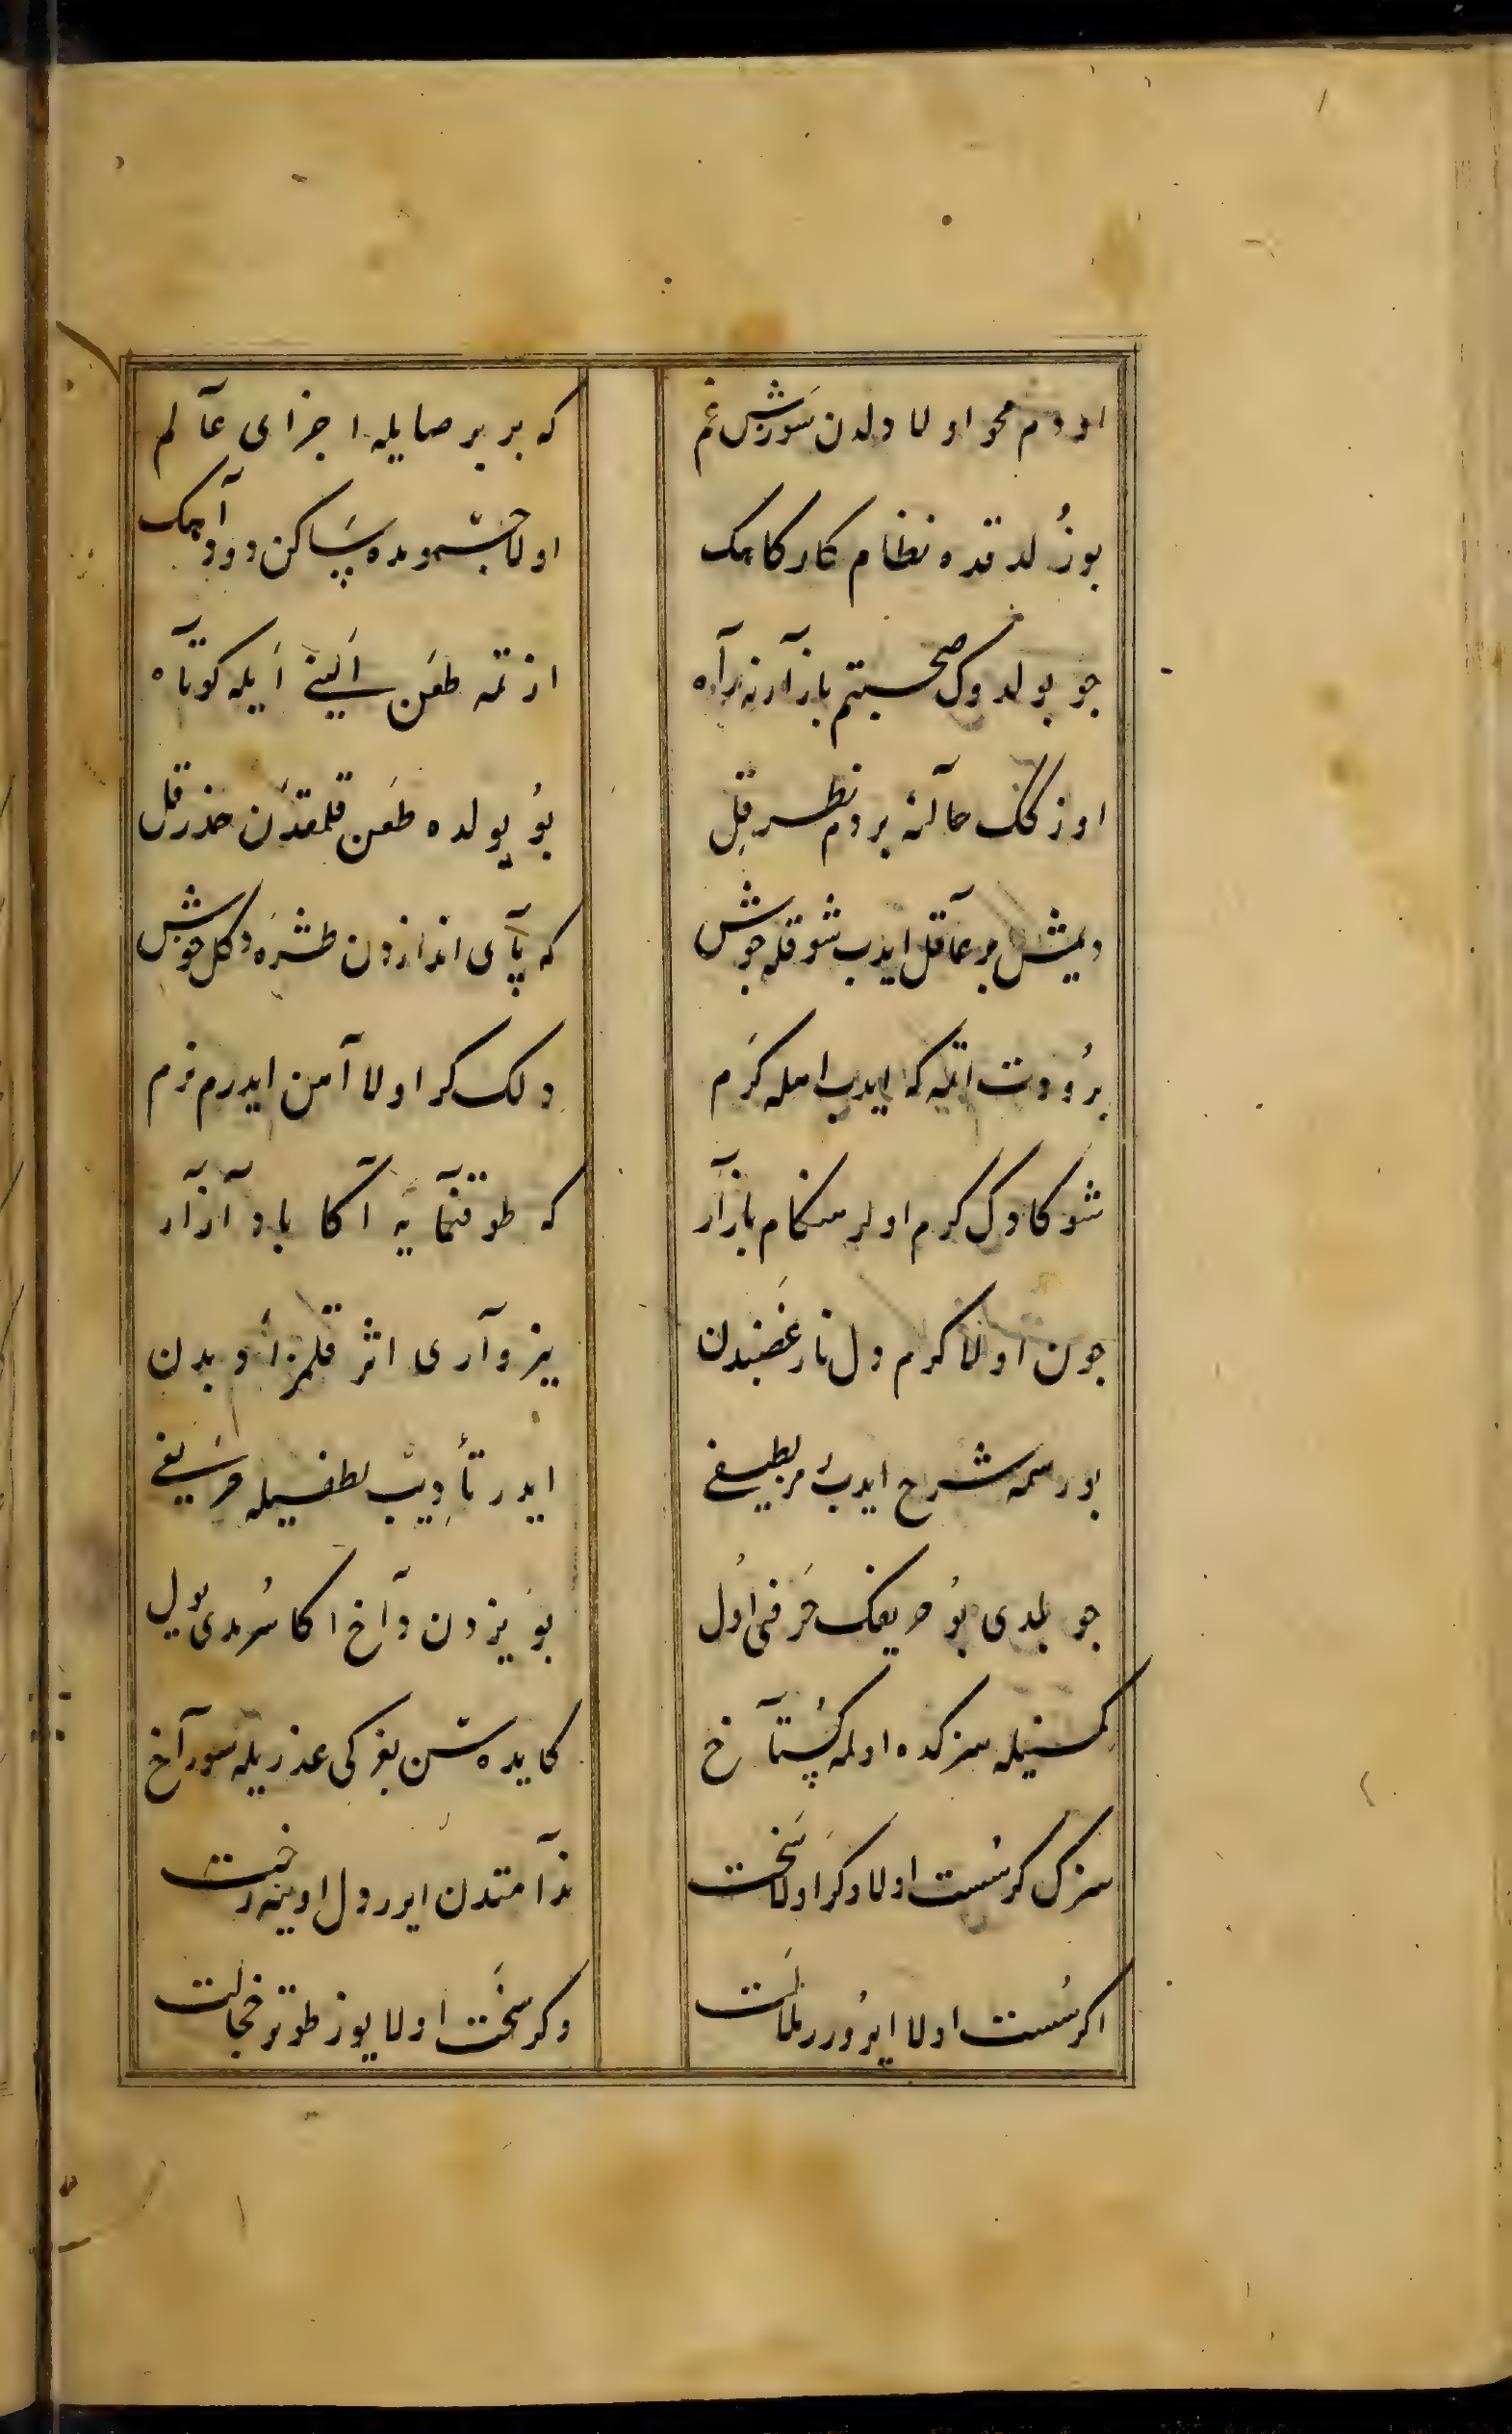 اودم محو اولا دلدن سَورش غم که بر بر صایله اجزای عآلم
بوزُلدقده نظام کارکاهک اولا جشمومده سَاکن دود آهک
جو بولدوک صحبتم بازآرنه رآه ازتمه طعَن اَلینے اَیله کوتآه
اوزککک حآلنه بردم نظر قِل بوُ یولده طعَن قلمقدَن حذر قل
دیمش بر عآقل ایدب شوقله جوش که پآی اندازدن طشَره دکل خوش
برُودت ایله که ایدب اهله کرَم دلک کر اولا آهن ایدرم نرم
شوکا دک کرم اولر هنکام بازآر که طوقنمآیه آکا باد آزآر
جون اولا کرم دل نار غضَبدن یز وآری اثر قلمز اَدبدن
بو رسمه شرح ایدبُ هر لطیفے ایدر تأدِیب لطفیله حرَیفے
جو بلدی بوُ حریفک حَرفنی اوُل بوَ یزدن دآخ اکا سُردی یول
کمسنیله سزکده اولمه کسُتآخ کایده سَن بغرکی عذریله سورآخ
سزک کر سُست اولا وکَر اولا سَخت ندآمتدن ایرر دل اوینه رخت
اکر سُست اولا ایرُور ملاَلت وکر سَخت اولا یوز طوتر خجالت